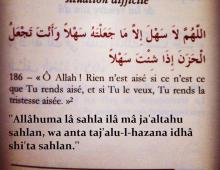 situation difficile
اللَّهُمَّ لاَ سَهْلَ إِلاَّ مَا جَعَلْتَهُ سَهْلاً وَأَنْتَ تَجْعَلُ
الْحَزَنَ إِذَا شِئْتَ سَهْلاً
186 – « Ô Allah ! Rien n'est aisé si ce n'est ce
que Tu rends aisé, et si Tu le veux, Tu rends la
tristesse aisée. »²
"Allâhuma lâ sahla ilâ mâ ja'altahu
sahlan, wa anta taj'alu-l-hazana idhâ
shi'ta sahlan."